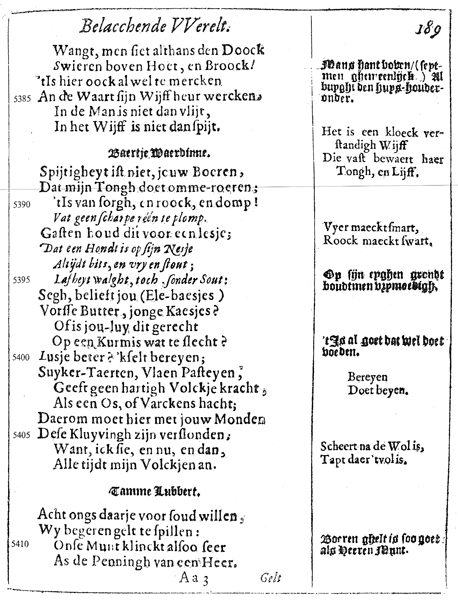 Belacchende VVerelt.
189
Wangt, men siet althans den Doock
Swieren boven Hoet, en Broock!
'tIs hier oock al wel te mercken
5385 An de Waart sijn Wijff heur wercken,
In de Man is niet dan vlijt,
In het Wijff is niet dan spijt.
Baertje Waerdinne.
Spijtigheyt ist niet, jouw Boeren,
Dat mijn Tongh doet omme-roeren;
5390 'tIs van sorgh, en roock, en domp!
Vat geen scharpe réén te plomp.
Gasten houd dit voor een lesje;
Dat een Hondt is op sijn Nesje
Altijdt bits, en vry en stout;
5395 Lafheyt walght, toch sonder Sout:
Segh, belieft jou (Ele-baesjes)
Vorsse Butter, jonge Kaesjes?
Of is jou-luy dit gerecht
Op een Kurmis wat te slecht?
5400 Lusje beter? 'kselt bereyen;
Suyker-Taerten, Vlaen Pasteyen;
Geeft geen hartigh Volckje kracht,
Als een Os, of Varckens hacht;
Daerom moet hier met jouw Monden
5405 Dese Kluyvingh zijn verslonden;
Want, ick sie, en nu, en dan,
Alle tijdt mijn Volckjen an.
Tamme Lubbert.
Acht ongs daarje voor soud willen,
Wy begeren gelt te spillen:
5410 Onse Munt klinckt alsoo seer
As de Penningh van een Heer.
Aa 3
Gelt
Mans hant boven/(sept-
men ghemeenlijck) Al
buyght den huys-houder-
onder.
Het is een kloeck ver-
standigh Wijff
Die vast bewaert haer
Tongh, en Lijff.
Vyer maeckt smart,
Roock maeckt swart,
Op sijn eyghen
houdtmen
't Is al goet dat wel doet
voeden.
Bereyen
Doet beyen.
Scheert na de Wol is,
Tapt daer 'tvol is.
Boeren ghelt is soo goet
als Heeren Munt.